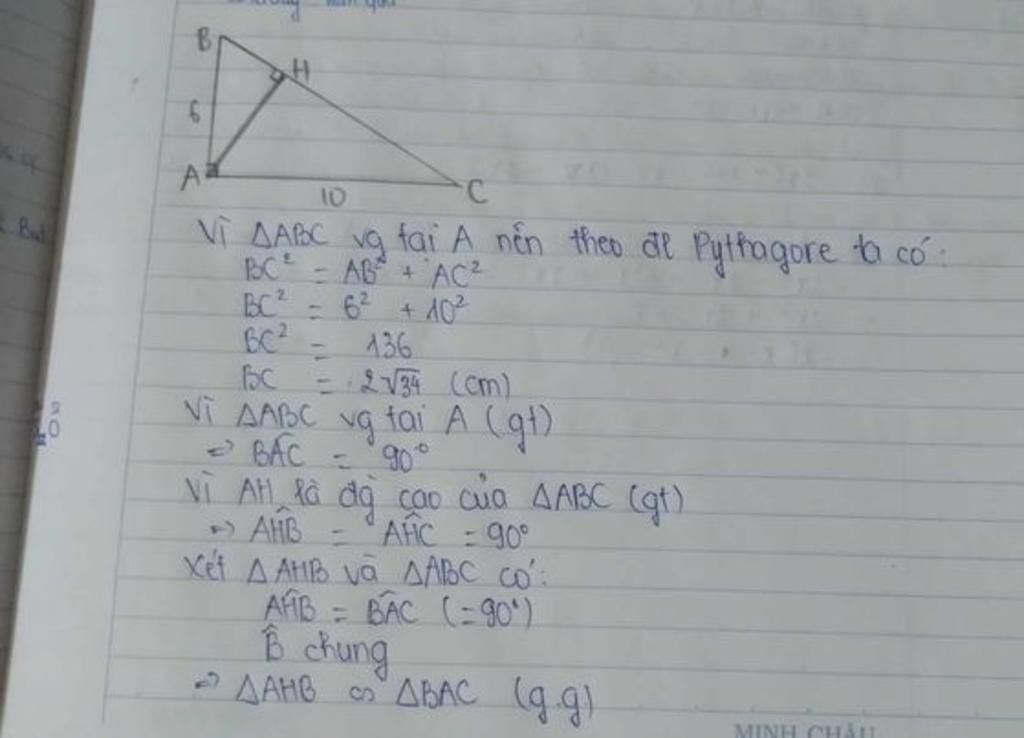 B
H
6
A
10
C
Vì ΔABC vg tại A nên theo đl Pythagore ta có:
BC² = AB² + AC²
BC² = 6² + 10²
BC² = 136
BC = 2√34 (cm)
Vì ΔABC vg tại A (gt)
=> BÂC = 90°
Vì AH là đg cao của ΔABC (gt)
=> AĤB = AĤC = 90°
Xét ΔAHB và ΔABC có:
AĤB = BÂC (=90°)
B̂ chung
=> ΔAHB ∽ ΔBAC (g.g)
MINH CHÂU